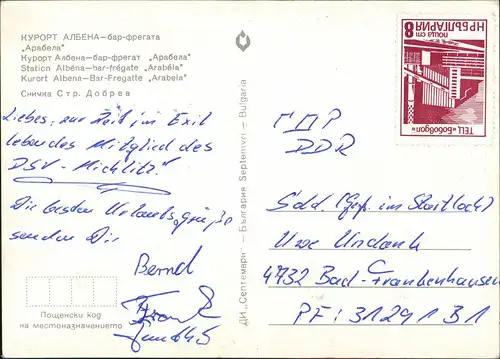 КУРОРТ АЛБЕНА—бар-фрегата
„Арабела“
Курорт Албена—бар-фрегат „Арабела“
Station Albéna—bar-frégate „Arabéla“
Kurort Albena—Bar-Fregatte „Arabela“
Снимка Стр. Добрев
Liebes, zur Zeit im Exil
lebendes Mitglied des
DSV-"Michlitz"
Die besten Urlaubsgrüße
senden Dir
Bernd
Пощенски код
на местоназначението
ДИ „Септември“ — България Septemvri — Bulgaria
НР БЪЛГАРИЯ
поща ст.
8
ТЕЦ „Бобовдол“
ГДР
DDR
Sold. (Gef. im Startloch)
Uwe Undank
4732 Bad-Frankenhausen
PF: 31291 B1